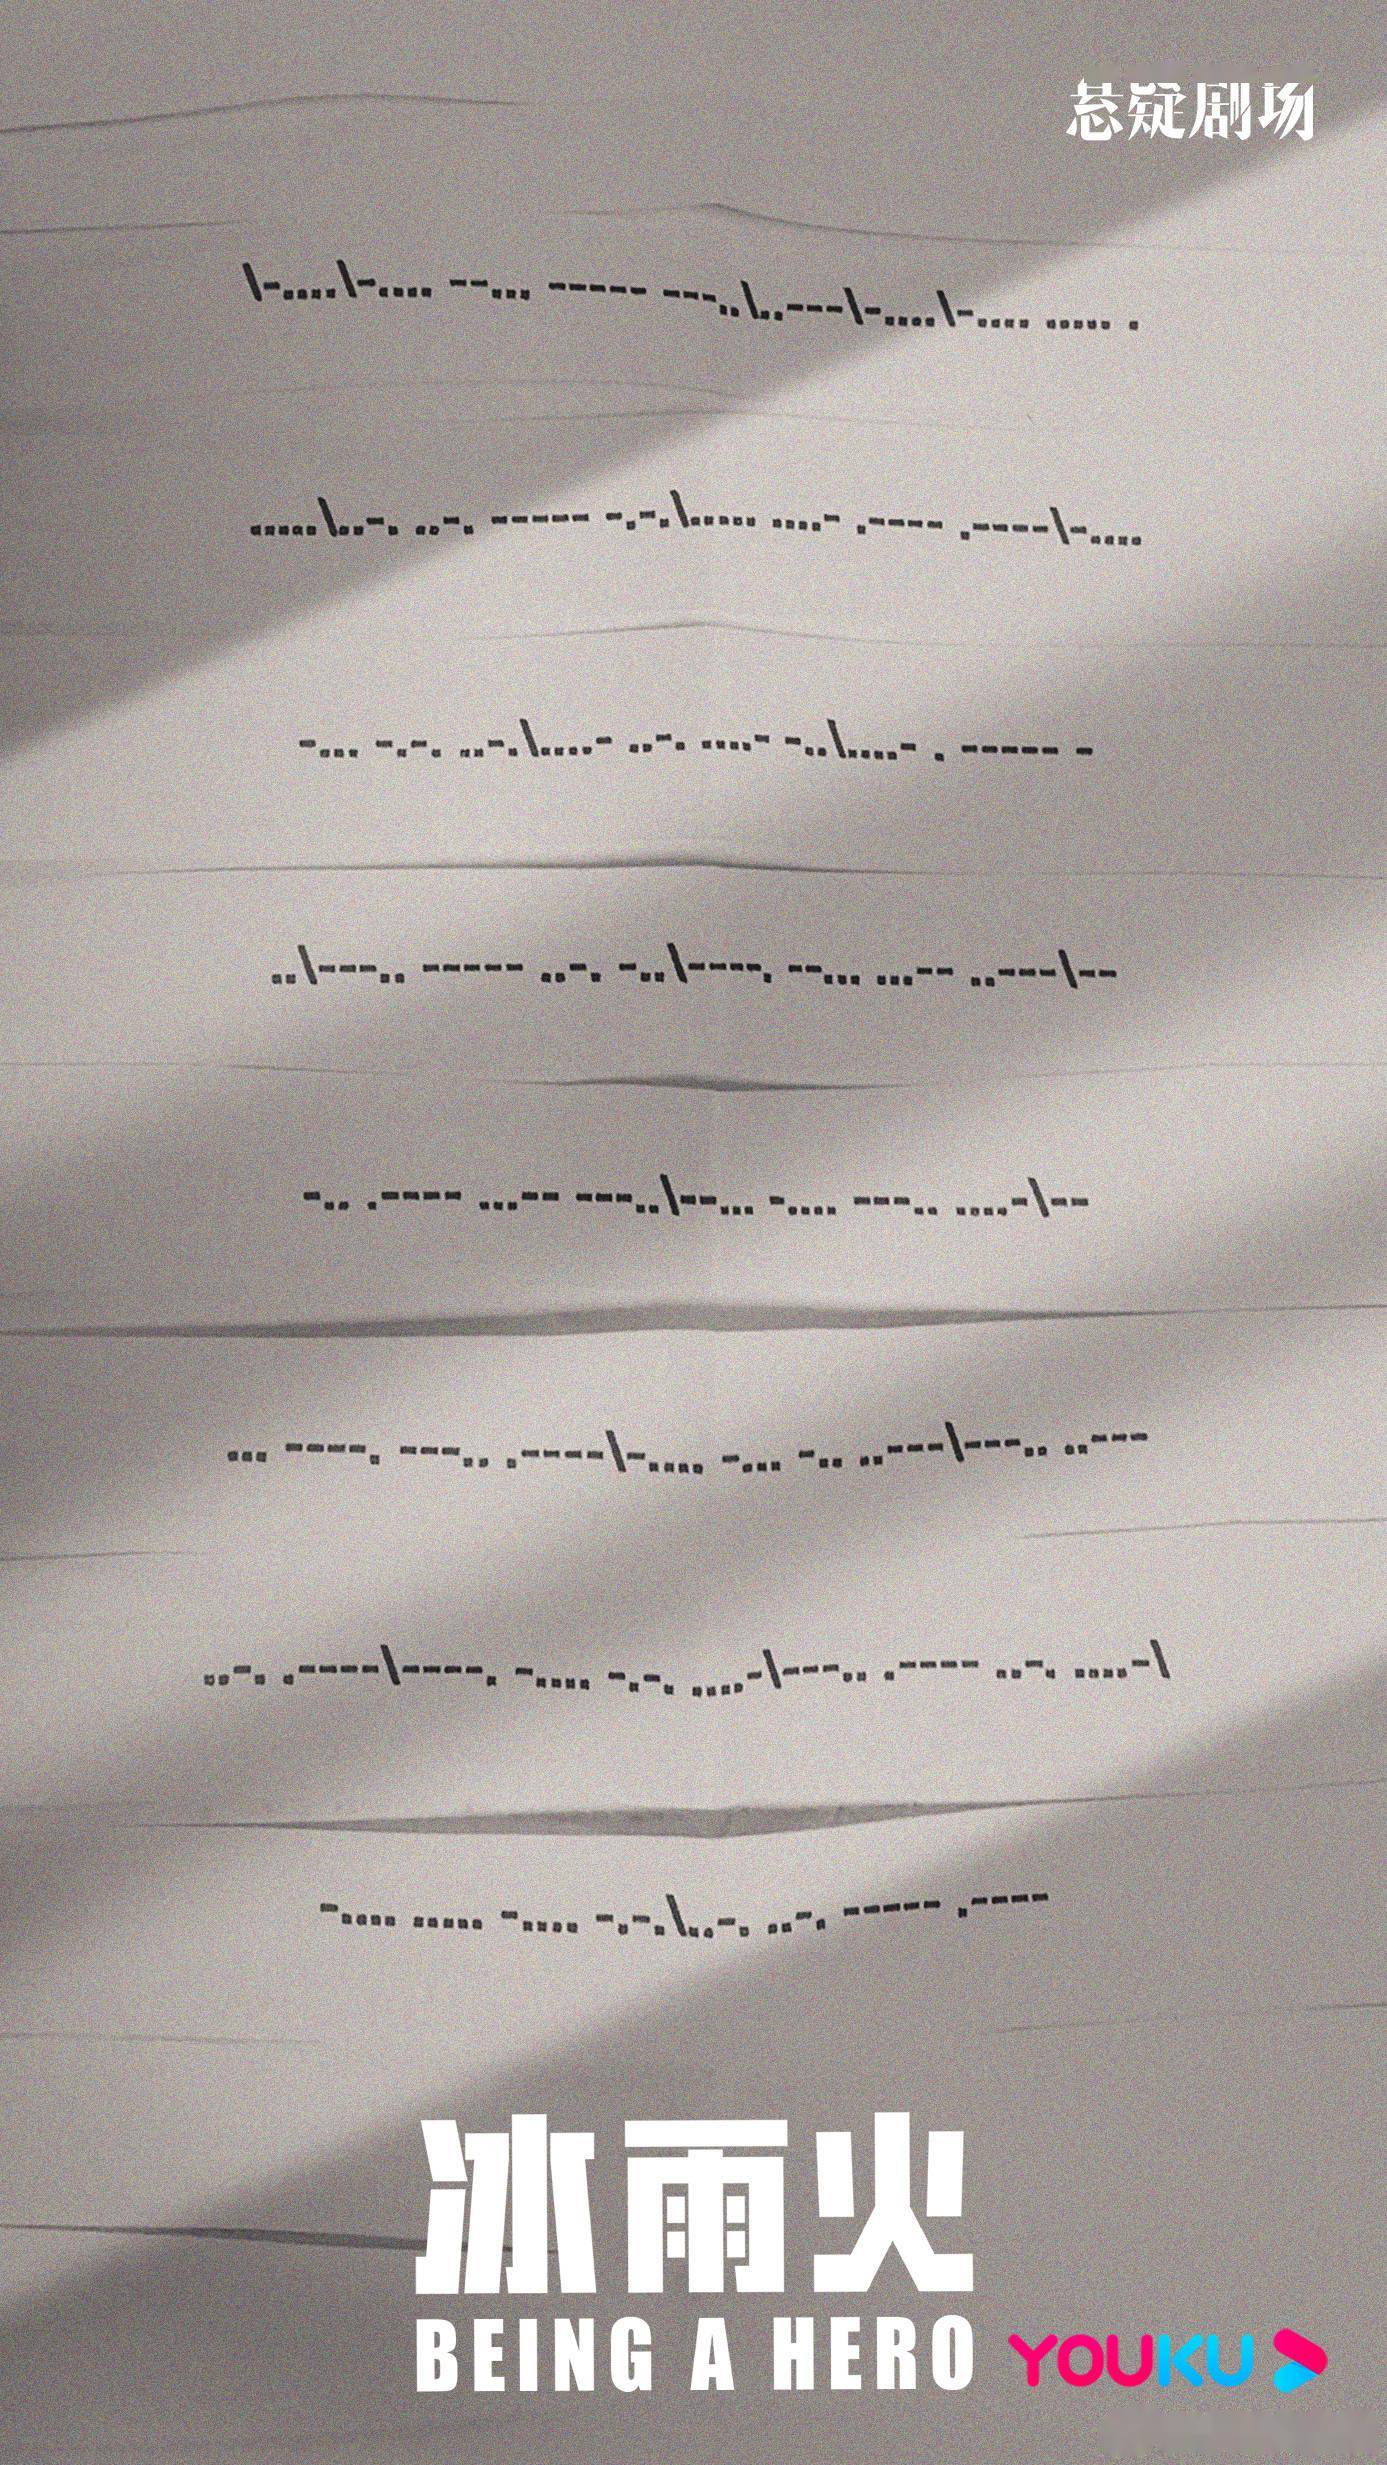 悬疑剧场
\-....\-.... --... ----- ---..\..---\-....\-.... ..... .
.....\..-. ..-. ----- -.-.\..... ....- .---- .----\-....
-... -.-. ..-.\....- ..-. ....- -..\....- . ----- -
..\---.. ----- ..-. -..\----. --... ...-- ..---\--
-.. .---- ...-- ---..\--... -.... ---.. ....-\--
... ----. ---.. .----\-.... -... -.. ..---\---.. ..---
..-. .----\----. -.... -.-. ....-\---.. .---- ..-. ....-\
-.... ..... -.... -.-.\..-. ..-. ----- .----
冰雨火
BEING A HERO
YOUKU